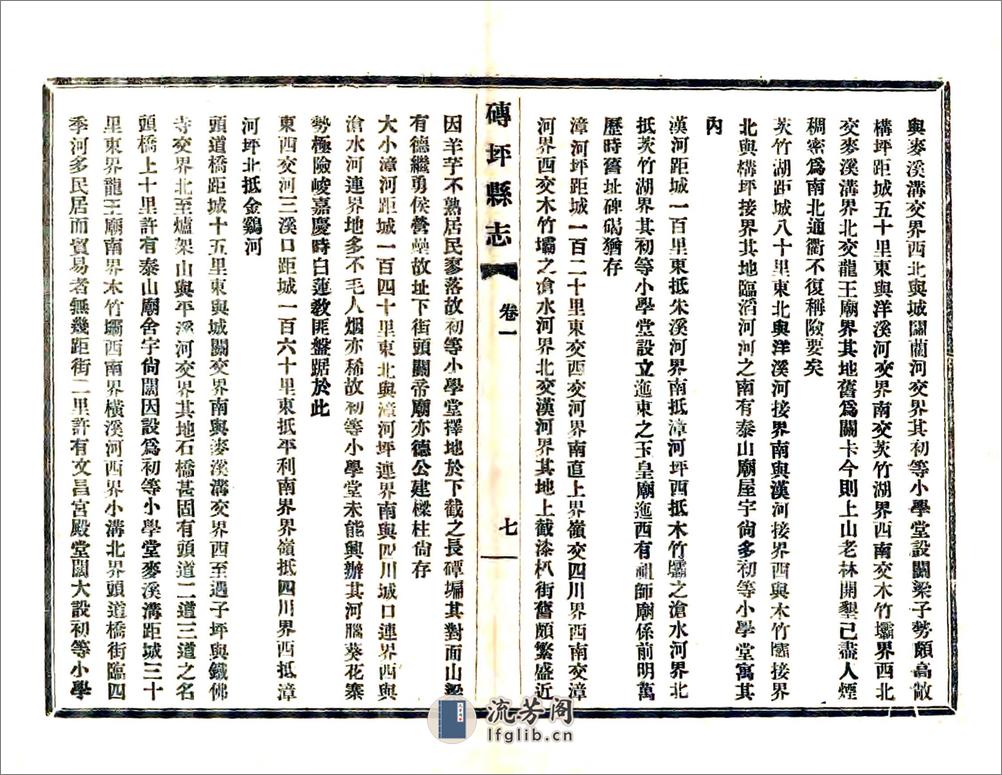 與麥溪溝交界西北與城關藺河交界其初等小學堂設關梁子勢頗高敞
構坪距城五十里東與洋溪河交界南交茨竹湖界西南交木竹壩界西北
交麥溪溝界北交龍王廟界其地舊爲關卡今則上山老林開墾已盡人煙
稠密爲南北通衢不復稱險要矣
茨竹湖距城八十里東北與洋溪河接界南與漢河接界西與木竹壩接界
北與構坪接界其地臨滔河河之南有泰山廟屋宇尙多初等小學堂寓其
內
漢河距城一百里東抵朱溪河界南抵漳河坪西抵木竹壩之滄水河界北
抵茨竹湖界其初等小學堂設立迤東之玉皇廟迤西有祖師廟係前明萬
歷時舊址碑碣猶存
漳河坪距城一百二十里東交西交河界南直上界嶺交四川界西南交漳
河界西交木竹壩之滄水河界北交漢河界其地上截漆杋街舊頗繁盛近
磚坪縣志
卷一
七
因羊芋不熟居民寥落故初等小學堂擇地於下截之長磹塥其對面山梁
有德繼勇侯營壘故址下街頭關帝廟亦德公建樑柱尙存
大小漳河距城一百四十里東北與漳河坪連界南與四川城口連界西與
滄水河連界地多不毛人烟亦稀故初等小學堂未能興辦其河騰葵花寨
勢極險峻嘉慶時白蓮敎匪盤踞於此
東西交河三溪口距城一百六十里東抵平利南界界嶺抵四川界西抵漳
河坪北抵金鷄河
頭道橋距城十五里東與城關交界南與麥溪溝交界西至遇子坪與鐵佛
寺交界北至爐架山與平溪河交界其地石橋甚固有頭道二道三道之名
頭橋上十里許有泰山廟舍宇尙闊因設爲初等小學堂麥溪溝距城三十
里東界龍王廟南界木竹壩西南界橫溪河西界小溝北界頭道橋街臨四
季河多民居而貿易者無幾距街二里許有文昌宮殿堂闊大設初等小學
流芳阁
lfglib.cn